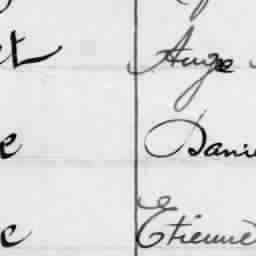 et Auge
e Danie
e Etienne